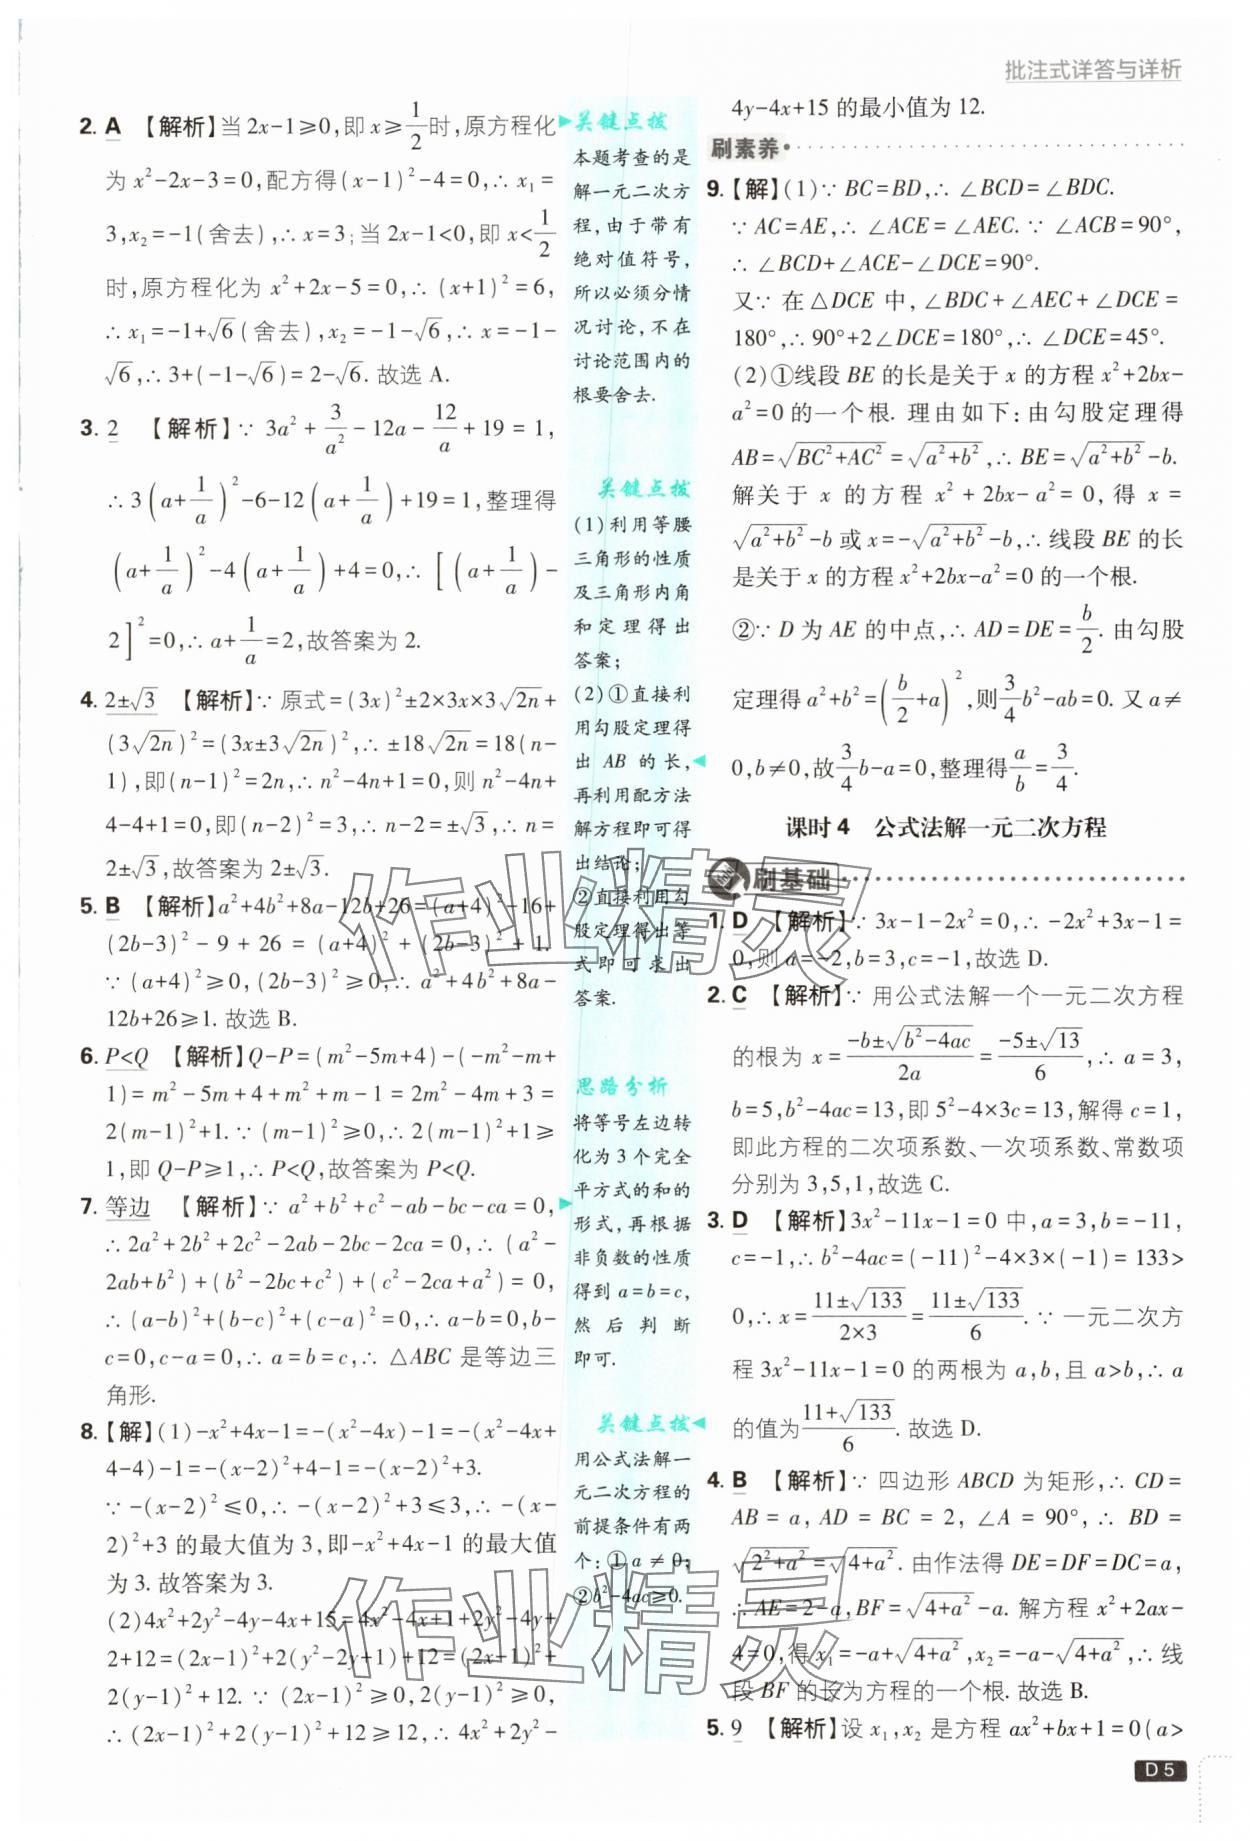 批注式详答与详析
2. A 【解析】当 2x-1≥0,即 x≥1/2时,原方程化
为 x²-2x-3=0,配方得(x-1)²-4=0,∴ x₁=
3,x₂=-1(舍去),∴ x=3;当 2x-1<0,即 x<1/2
时,原方程化为 x²+2x-5=0,∴ (x+1)²=6,
∴ x₁=-1+√6(舍去),x₂=-1-√6,∴ x=-1-
√6,∴ 3+(-1-√6)=2-√6. 故选 A.
3. 2 【解析】∵ 3a²+3/a²-12a-12/a+19=1,
∴ 3(a+1/a)²-6-12(a+1/a)+19=1,整理得
(a+1/a)²-4(a+1/a)+4=0,∴ [(a+1/a)-
2]²=0,∴ a+1/a=2,故答案为 2.
4. 2±√3 【解析】∵ 原式=(3x)²±2×3x×3√2n+
(3√2n)²=(3x±3√2n)²,∴ ±18√2n=18(n-
1),即(n-1)²=2n,∴ n²-4n+1=0,则 n²-4n+
4-4+1=0,即(n-2)²=3,∴ n-2=±√3,∴ n=
2±√3,故答案为 2±√3.
5. B 【解析】a²+4b²+8a-12b+26=(a+4)²-16+
(2b-3)²-9+26=(a+4)²+(2b-3)²+1.
∵ (a+4)²≥0,(2b-3)²≥0,∴ a²+4b²+8a-
12b+26≥1. 故选 B.
6. P<Q 【解析】Q-P=(m²-5m+4)-(-m²-m+
1)=m²-5m+4+m²+m-1=2m²-4m+3=
2(m-1)²+1. ∵ (m-1)²≥0,∴ 2(m-1)²+1≥
1,即 Q-P≥1,∴ P<Q,故答案为 P<Q.
7. 等边 【解析】∵ a²+b²+c²-ab-bc-ca=0,
∴ 2a²+2b²+2c²-2ab-2bc-2ca=0,∴ (a²-
2ab+b²)+(b²-2bc+c²)+(c²-2ca+a²)=0,
∴ (a-b)²+(b-c)²+(c-a)²=0,∴ a-b=0,b-
c=0,c-a=0,∴ a=b=c,∴ △ABC 是等边三
角形.
8.【解】(1)-x²+4x-1=-(x²-4x)-1=-(x²-4x+
4-4)-1=-(x-2)²+4-1=-(x-2)²+3.
∵ -(x-2)²≤0,∴ -(x-2)²+3≤3,∴ -(x-
2)²+3 的最大值为 3,即-x²+4x-1 的最大值
为 3. 故答案为 3.
(2)4x²+2y²-4y-4x+15=4x²-4x+1+2y²-4y+
2+12=(2x-1)²+2(y²-2y+1)+12=(2x-1)²+
2(y-1)²+12. ∵ (2x-1)²≥0,2(y-1)²≥0,
∴ (2x-1)²+2(y-1)²+12≥12,∴ 4x²+2y²-
关键点拨
本题考查的是
解一元二次方
程,由于带有
绝对值符号,
所以必须分情
况讨论,不在
讨论范围内的
根要舍去.
关键点拨
(1)利用等腰
三角形的性质
及三角形内角
和定理得出
答案;
(2)①直接利
用勾股定理得
出 AB 的长,
再利用配方法
解方程即可得
出结论;
②直接利用勾
股定理得出等
式即可求出
答案.
思路分析
将等号左边转
化为 3 个完全
平方式的和的
形式,再根据
非负数的性质
得到 a=b=c,
然后判断
即可.
关键点拨
用公式法解一
元二次方程的
前提条件有两
个:①a≠0;
②b²-4ac≥0.
4y-4x+15 的最小值为 12.
刷素养
9.【解】(1)∵ BC=BD,∴ ∠BCD=∠BDC.
∵ AC=AE,∴ ∠ACE=∠AEC. ∵ ∠ACB=90°,
∴ ∠BCD+∠ACE-∠DCE=90°.
又∵ 在△DCE 中,∠BDC+∠AEC+∠DCE=
180°,∴ 90°+2∠DCE=180°,∴ ∠DCE=45°.
(2)①线段 BE 的长是关于 x 的方程 x²+2bx-
a²=0的一个根. 理由如下:由勾股定理得
AB=√(BC²+AC²)=√(a²+b²),∴ BE=√(a²+b²)-b.
解关于 x 的方程 x²+2bx-a²=0,得 x=
√(a²+b²)-b 或 x=-√(a²+b²)-b,∴ 线段 BE 的长
是关于 x 的方程 x²+2bx-a²=0 的一个根.
②∵ D 为 AE 的中点,∴ AD=DE=b/2. 由勾股
定理得 a²+b²=(b/2+a)²,则3/4b²-ab=0. 又 a≠
0,b≠0,故3/4b-a=0,整理得a/b=3/4.
课时 4 公式法解一元二次方程
刷基础
1. D 【解析】∵ 3x-1-2x²=0,∴ -2x²+3x-1=
0,则 a=-2,b=3,c=-1,故选 D.
2. C 【解析】∵ 用公式法解一个一元二次方程
的根为 x=(-b±√(b²-4ac))/2a=(-5±√13)/6,∴ a=3,
b=5,b²-4ac=13,即 5²-4×3c=13,解得 c=1,
即此方程的二次项系数、一次项系数、常数项
分别为 3,5,1,故选 C.
3. D 【解析】3x²-11x-1=0 中,a=3,b=-11,
c=-1,∴ b²-4ac=(-11)²-4×3×(-1)=133>
0,∴ x=(11±√133)/(2×3)=(11±√133)/6. ∵ 一元二次方
程 3x²-11x-1=0 的两根为 a,b,且 a>b,∴ a
的值为(11+√133)/6. 故选 D.
4. B 【解析】∵ 四边形 ABCD 为矩形,∴ CD=
AB=a,AD=BC=2,∠A=90°,∴ BD=
√(2²+a²)=√(4+a²). 由作法得 DE=DF=DC=a,
∴ AE=2-a,BF=√(4+a²)-a. 解方程 x²+2ax-
4=0,得 x₁=-a+√(4+a²),x₂=-a-√(4+a²),∴ 线
段 BF 的长为方程的一个根. 故选 B.
5. 9 【解析】设 x₁,x₂ 是方程 ax²+bx+1=0(a>
D 5
作业精灵
作业精灵